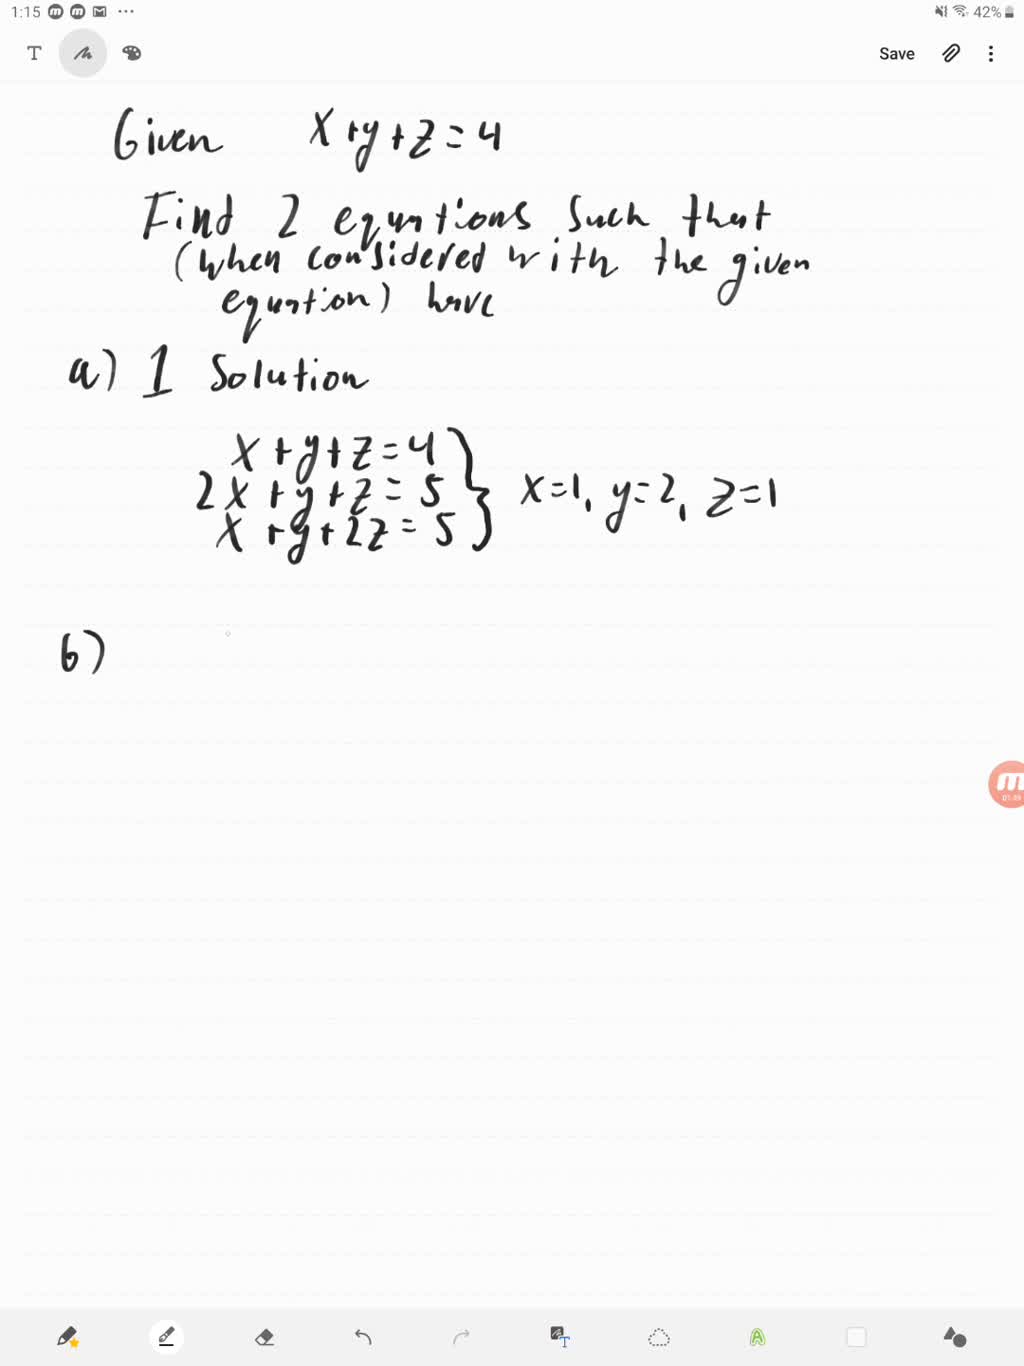 1:15 42%
T Save
Given x+y+z=4
Find 2 equations such that
(when considered with the given
equation) have
a) 1 Solution
x+y+z=4
2x+y+z=5 x=1, y=2, z=1
x+y+2z=5
b)
01:39